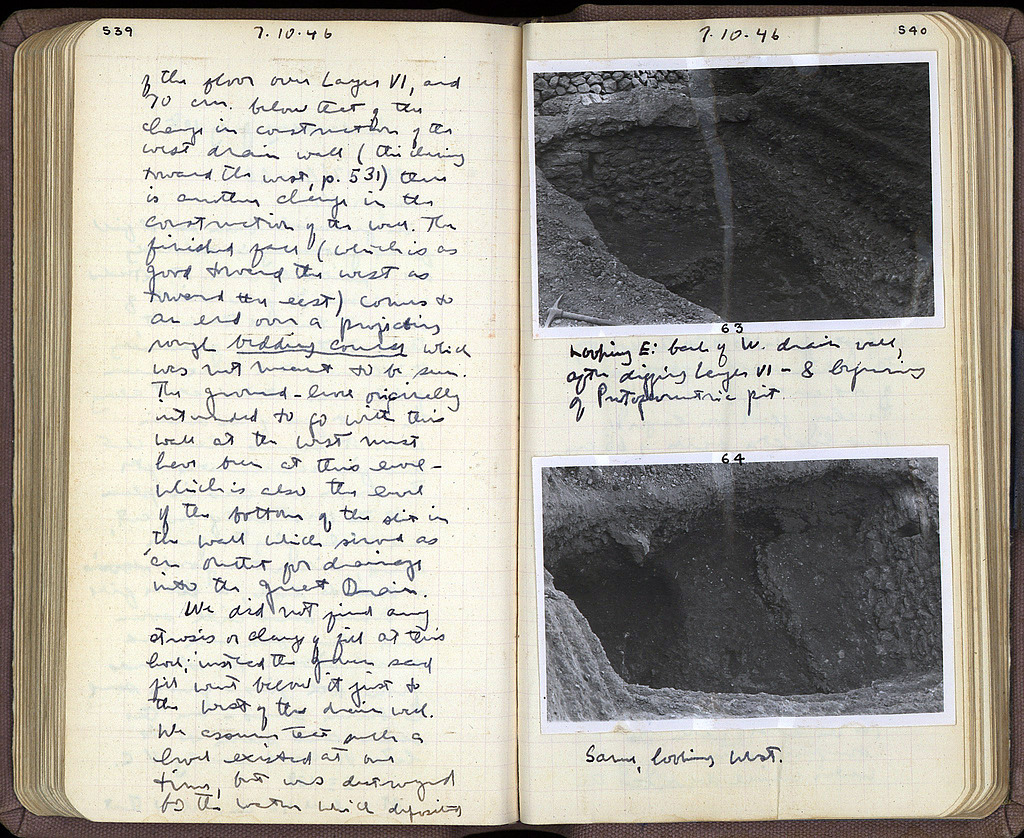 539
7.10.46
of the floor over Layer VI, and
70 cm. below that of the
change in construction of the
west drain wall (thickening
toward the west, p. 531) there
is another change in the
construction of the wall. The
finished face (which is as
good toward the west as
toward the east) comes to
an end over a projecting
rough bedding course which
was not meant to be seen.
The ground-level originally
intended to go with this
wall at the west must
have been at this level -
which is also the level
of the bottom of the slit in
the wall which served as
an outlet for drainage
into the Great Drain.
We did not find any
strosis or change of fill at this
level; instead the green sand
fill went below it just to
the west of the drain wall.
We assume that such a
level existed at one
time, but was destroyed
by the water which deposited
7.10.46
540
63
Looking E: back of W. drain wall,
after digging Layer VI - & beginning
of Protogeometric pit
64
Same, looking West.